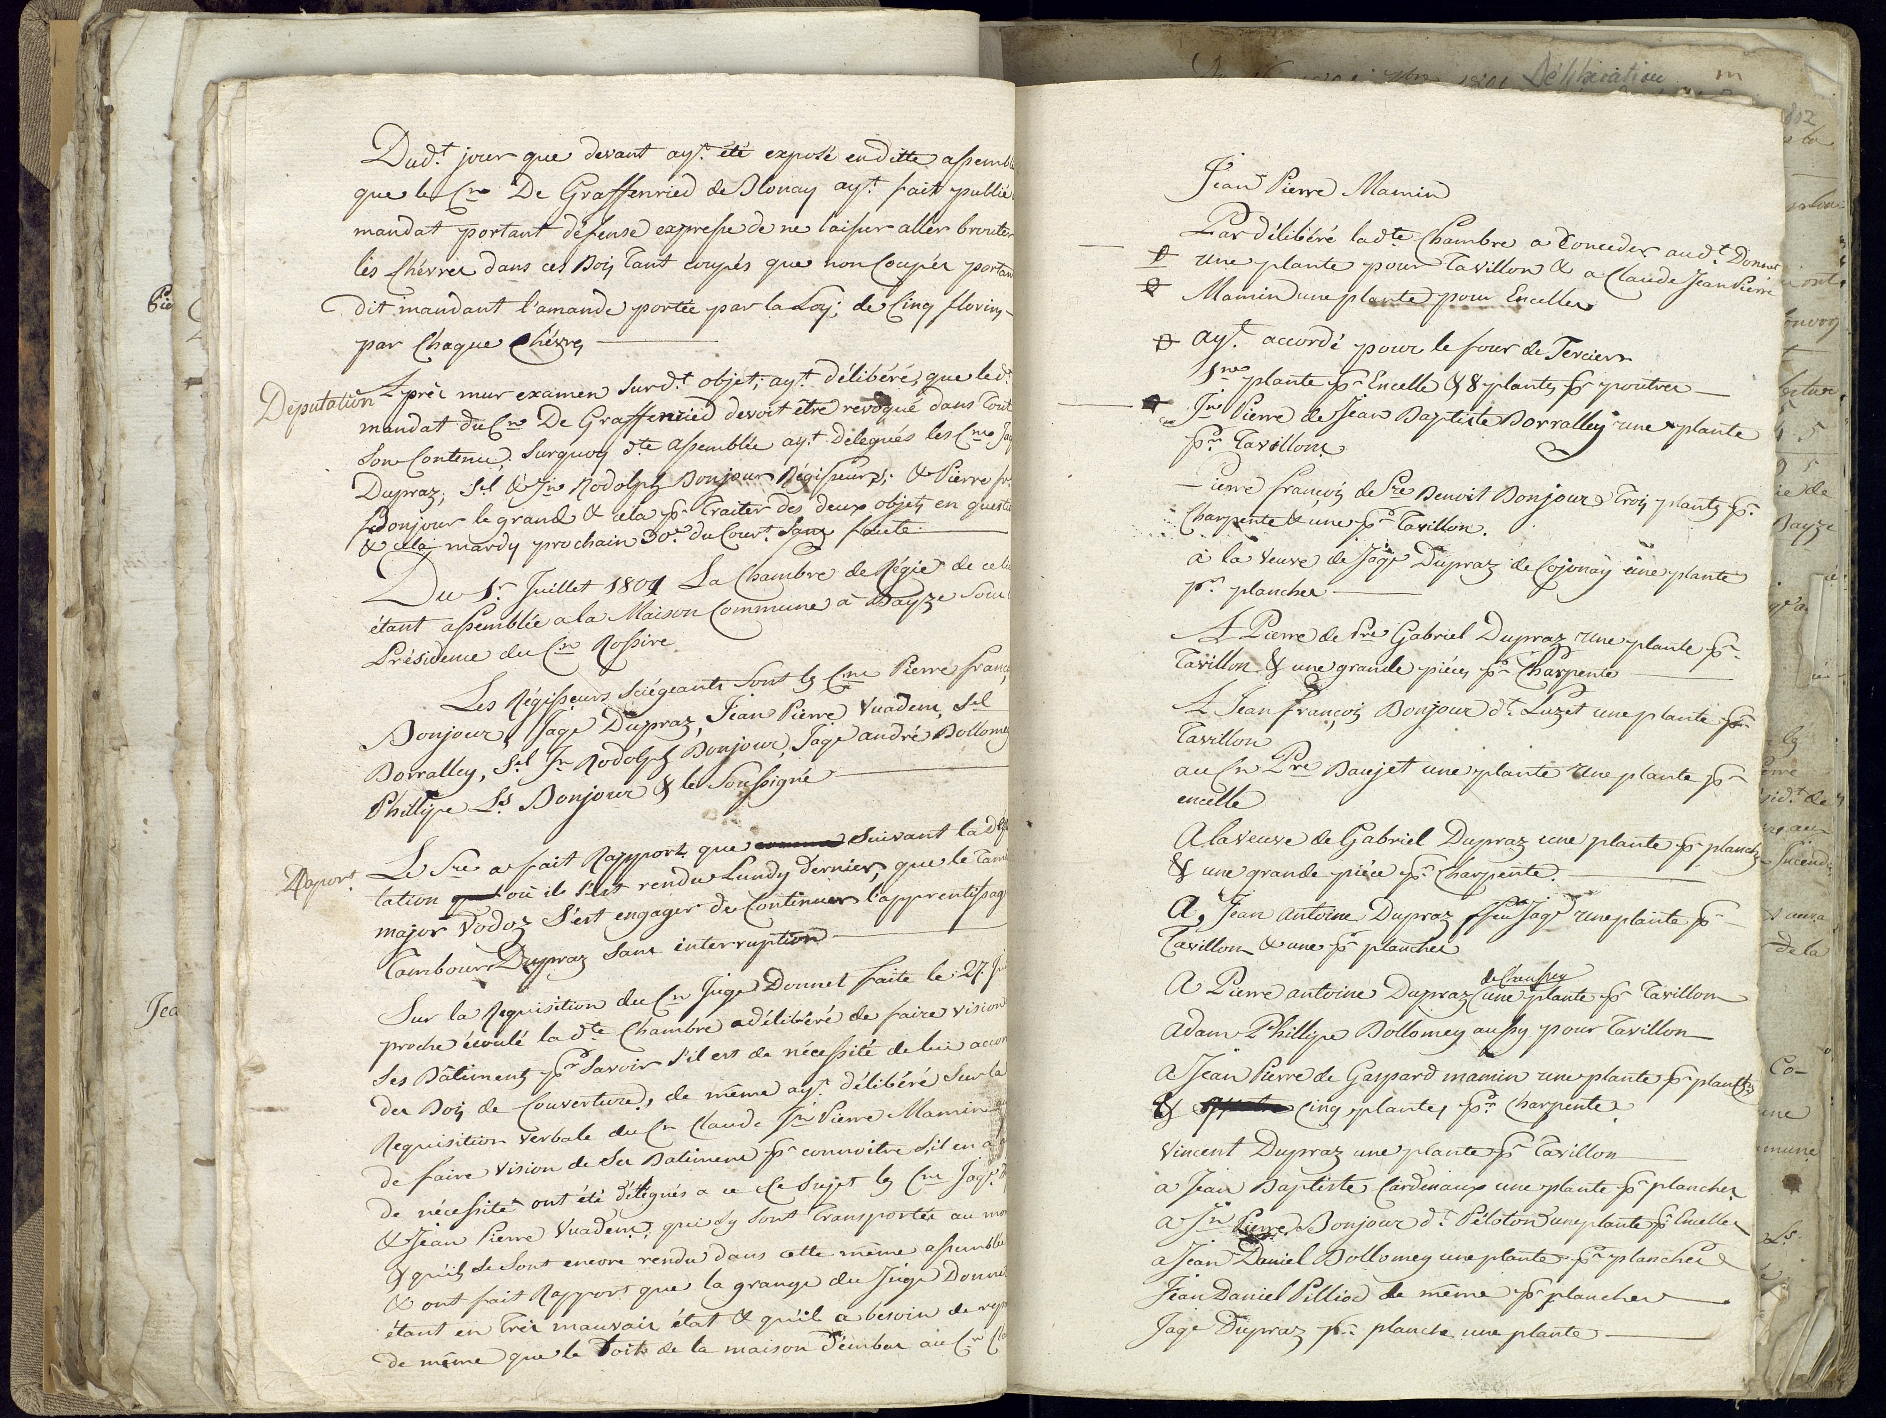 Dud.t jour que devant ay.t été exposé en ditte assemb
que le C.n De Graffenried de Blonay ay.t fait publie
mandat portant défense expresse de ne laisser aller brouter
les Chévres dans ces Bois Tant coupés que non Coupés portan
dit mandant l'amande portée par la Loy; de Cinq florins
par Chaque Chévres
Députation
Après mur examen Sur d.t objet; ay.t délibéré, que led.t
mandat du C.n De Graffenried devoit être revoqué dans Tout
Son Contenu, Surquoy d.te Assemblée ay.t Délegués les C.ns Jaq
Dupraz; S.l & J.n Rodolph Bonjour Régisseurs; & Pierre fr
Bonjour le grand & cela p.r Traiter des deux objets en questi
& cela mardy prochain 30.e du Cour.t Sans faute
Du 1.r Juillet 1801 La Chambre de Régie de ce li
étant assemblée a la Maison Commune à Bayze Sous
Présidence du C.n Rossire
Les Régisseurs Sciégeants Sont les C.ns Pierre franç
Bonjour, Jaq.e Dupraz, Jean Pierre Vuadens, S.l
Borralley, S.l J.n Rodolph Bonjour, Jaq.e andré Bollomey
Phillipe L.s Bonjour & le Soussigné
Raport
Le S.re a fait Rapport que Suivant la dép
tation où il s'est rendu Lundy dernier, que le Tam
major Vodoz S'est engager de Continuer l'apprentissag
Tambour Dupraz Sans interruption
Sur la Requisition du C.n Juge Donnet faite le 27. J
proche écoulé la d.te Chambre a délibéré de faire vision
Ses Bâtiments p.r Savoir S'il est de nécessité de lui accor
des Bois de Couverture, de même ay.t délibéré Sur la
Requisition verbale du C.n Claude J.n Pierre Mamin
de faire vision de Ses Batiments p.r connoitre s'il en a
de nécessité ont été délégués a ce Sujet les C.ns Jaq.e D
& Jean Pierre Vuadens, qui Sy Sont Transportés au mo
& qu'ils Se Sont encore rendu dans cette même assemblée
& ont fait Rapport que la grange du Juge Donnet
étant en Très mauvais état & qu'il a besoin de rep
de même que le Toit de la maison d'embas au C.n Cla
Jean Pierre Mamin
Par délibéré lad.te Chambre a Conceder aud.t Donnet
une plante pour Tavillon & a Claude Jean Pierre
Mamin une plante pour Encelles
ay.t accordé pour le four de Tercier
1.ne plante p.r Encelle & 8 plantes p.r poutres
J.n Pierre de Jean Baptiste Borralley une plante
p.r Tavillons
Pierre françois de P.re Benoit Bonjour Trois plantes p.r
Charpente & une p.r Tavillon.
à la Veuve de Jaq.e Dupraz de Cojonay une plante
p.r planches
A Pierre de P.re Gabriel Dupraz une plante p.r
Tavillon & une grande piéces p.r Charpente
A Jean françois Bonjour d.t Luzet une plante p.r
Tavillon
au C.n P.re Baujet une plante une plante p.r
encelle
A la veuve de Gabriel Dupraz une plante p.r planches
& une grande piéce p.r Charpente.
A, Jean Antoine Dupraz feu Jaq.e une plante p.r
Tavillon & une p.r planches
de Crausaz
A Pierre antoine Dupraz une plante p.r Tavillon
adam Phillipe Bollomey aussy pour Tavillon
a Jean Pierre de Gaspard mamin une plante p.r planches
& cinq plantes p.r Charpente
Vincent Dupraz une plante p.r Tavillon
a Jean Baptiste Cardinaux une plante p.r planches
a J.n Pierre Bonjour d.t Péloton une plante p.r Encelles
a Jean Daniel Bollomey une plante p.r planches
Jean Daniel Pilliod de même p.r planches
Jaq.e Dupraz p.r planche une plante